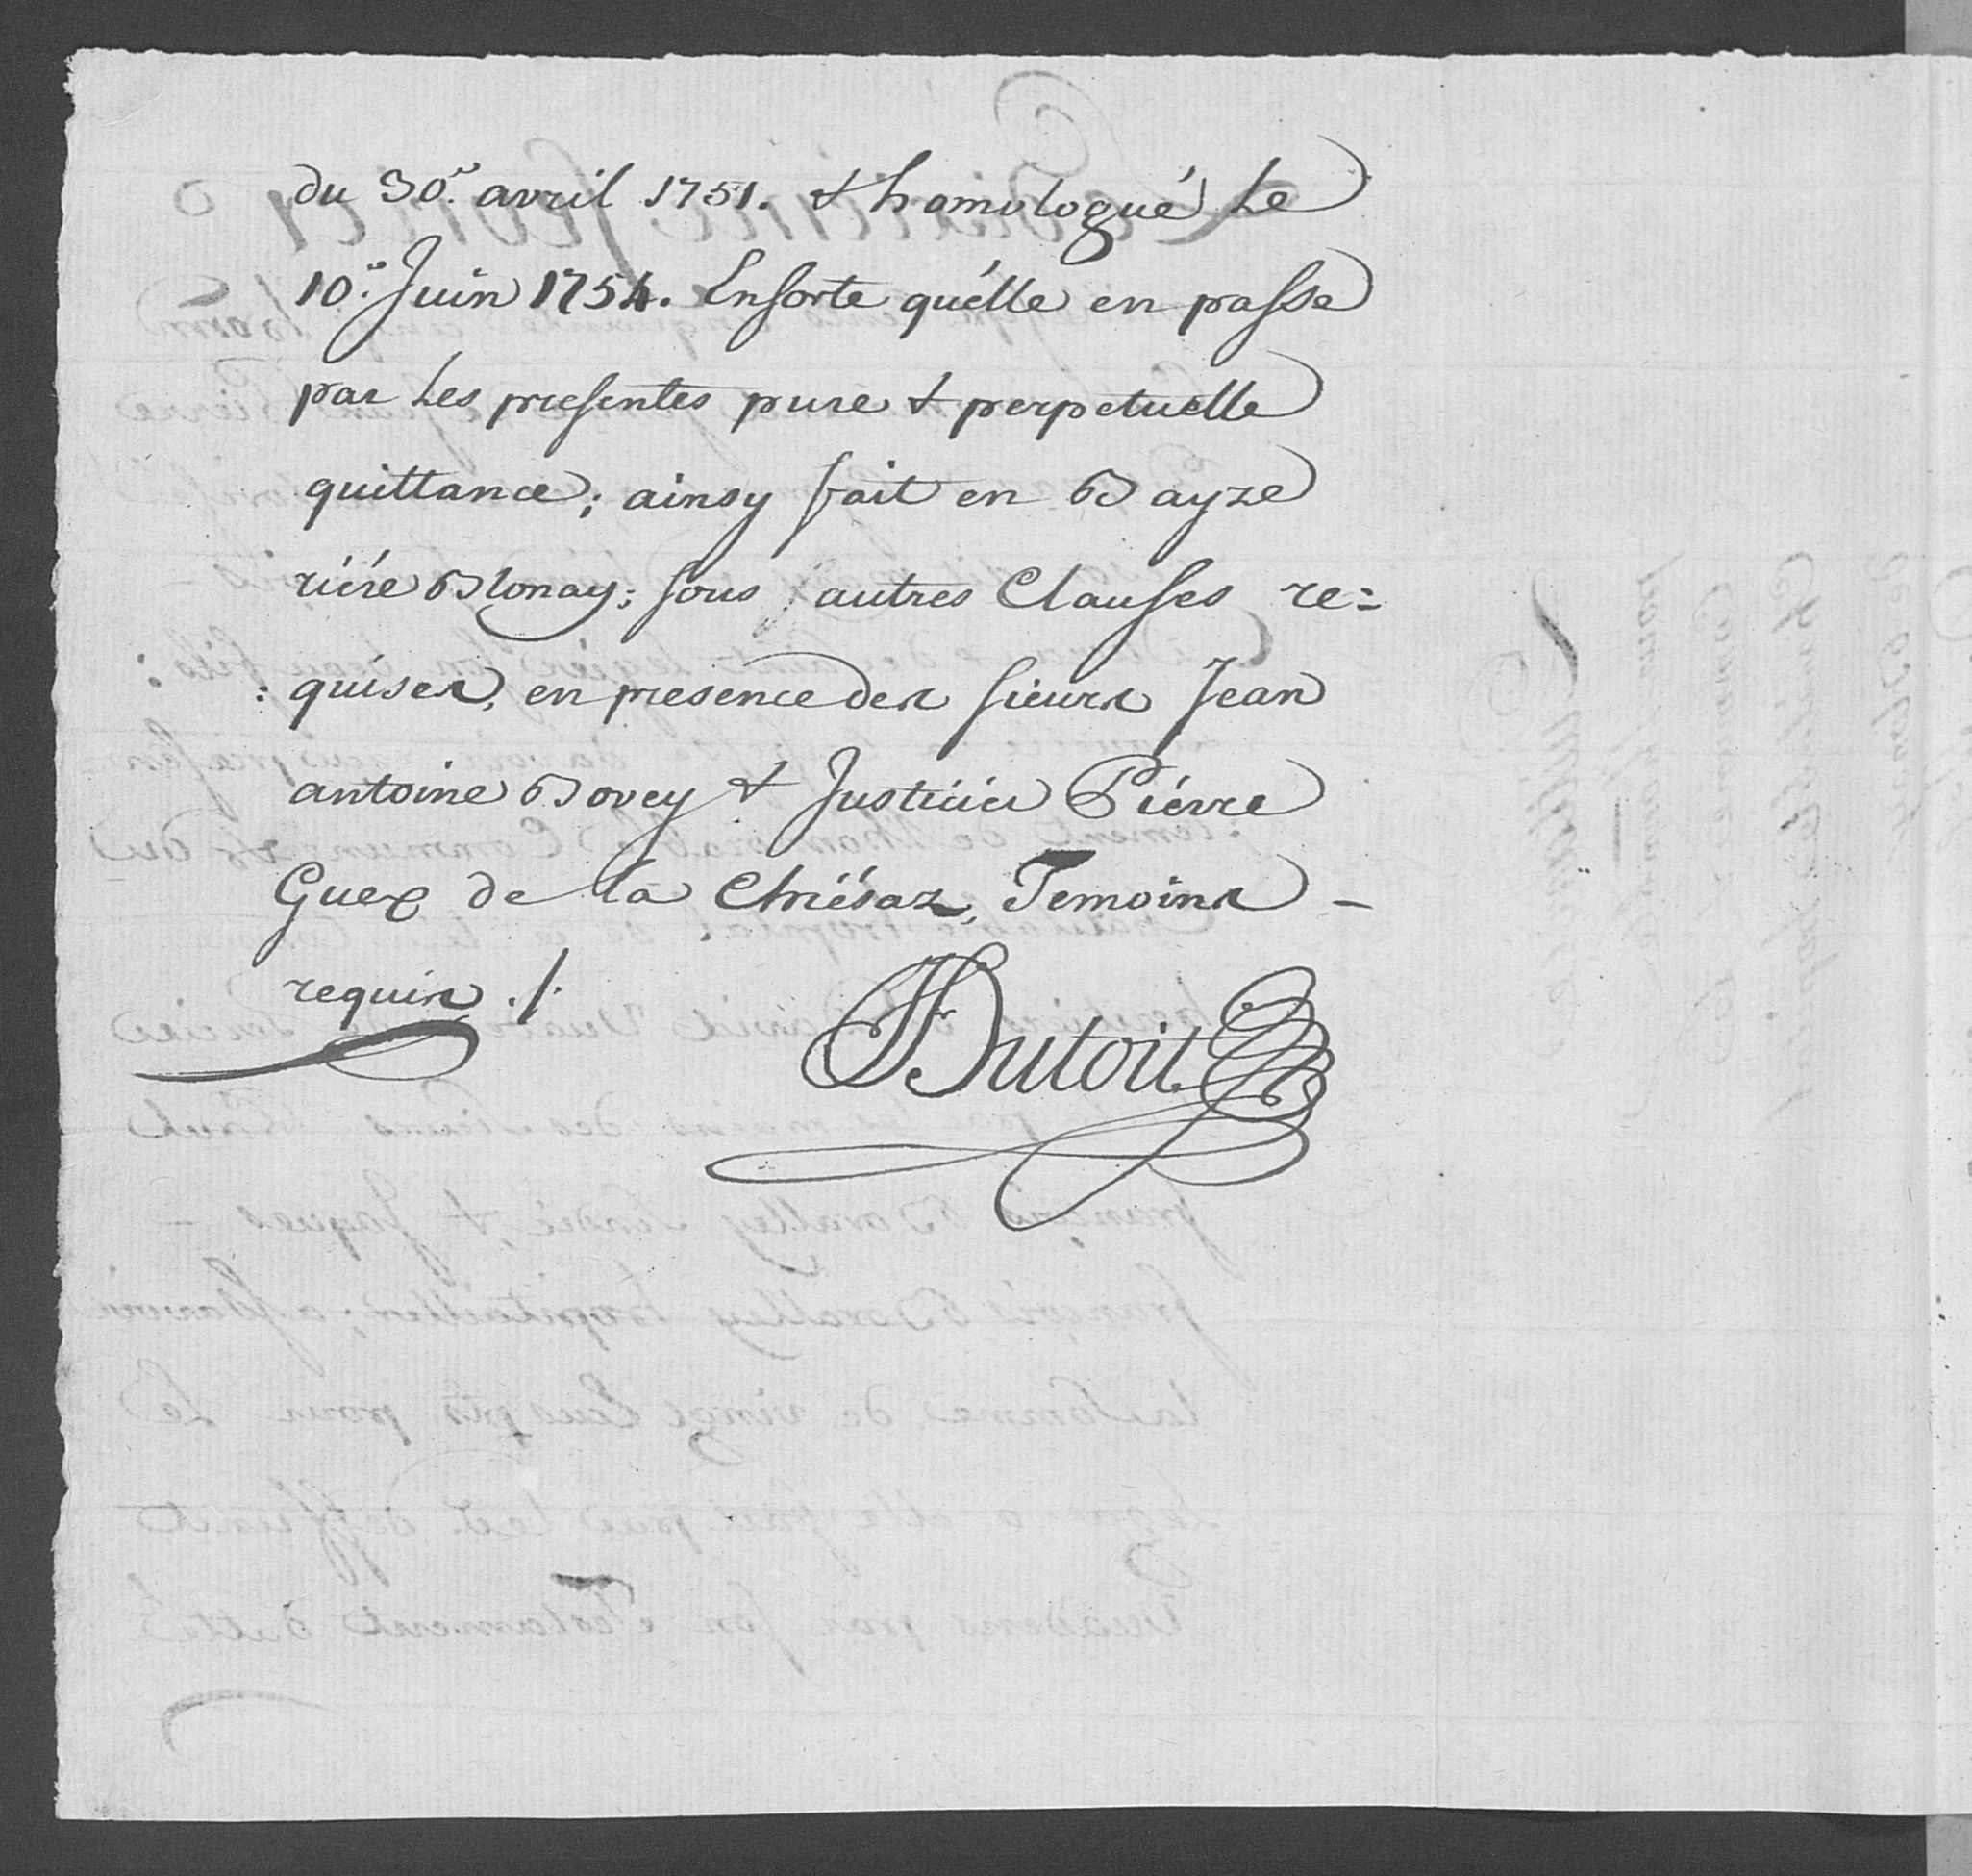 du 30.e avril 1751. & homologué Le
10.e Juin 1754. Ensorte qu'élle en passe
par Les presentes pure & perpetuelle
quittance; ainsy fait en Bayze
riére Blonay; sous autres Clauses re=
: quises, en presence des sieurs Jean
antoine Bovey & Justicier Piérre
Guex de la Chiésaz, Temoins -
requis ./.
Dutoit